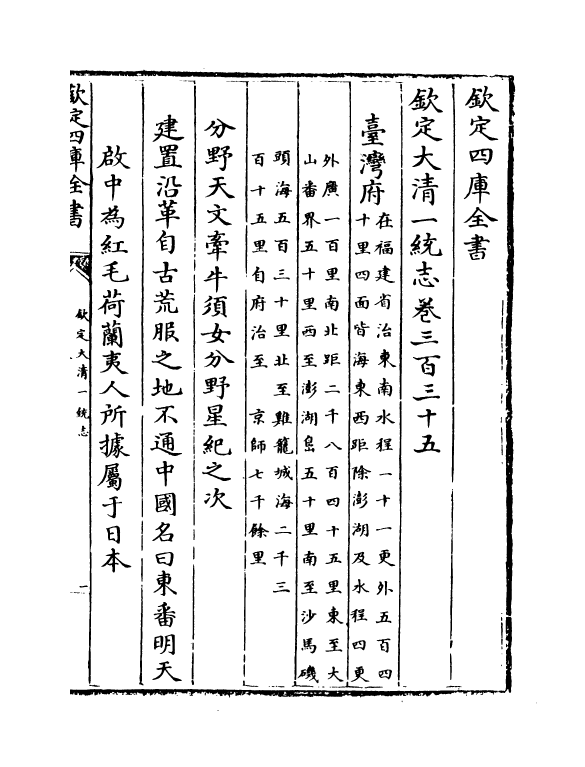 欽定四庫全書
欽定大清一統志卷三百三十五
臺灣府
在福建省治東南水程一十一更外五百四
十里四面皆海東西距除澎湖及水程四更
外廣一百里南北距二千八百四十五里東至大
山番界五十里西至澎湖島五十里南至沙馬磯
頭海五百三十里北至雞籠城海二千三
百十五里自府治至 京師七千餘里
分野天文牽牛須女分野星紀之次
建置沿革自古荒服之地不通中國名曰東番明天
啟中為紅毛荷蘭夷人所據屬于日本
欽定四庫全書
欽定大清一統志
一